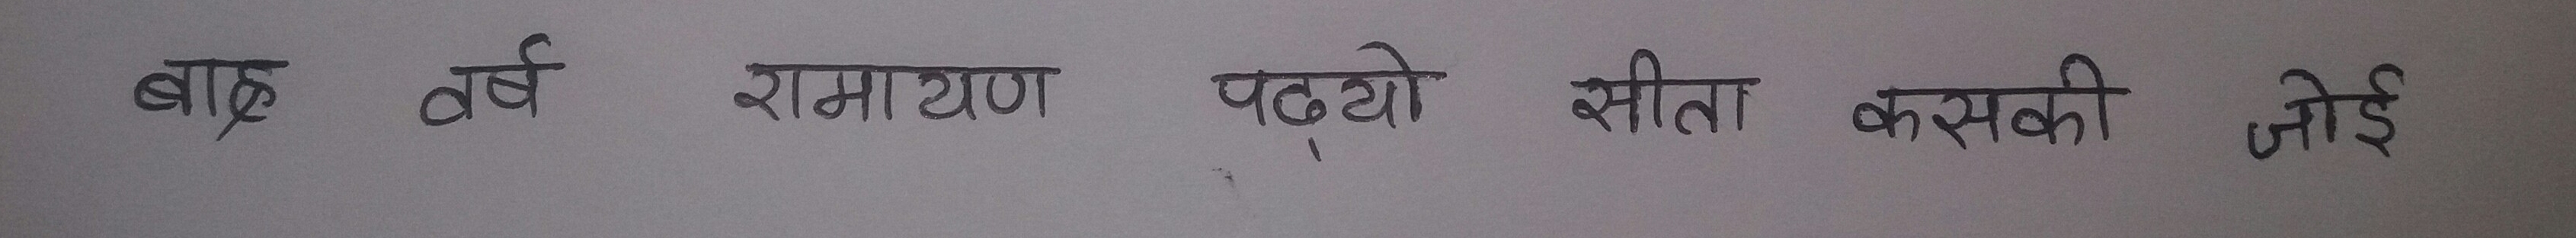 बाह्र वर्ष रामायण पढ्यो सीता कसकी जोई